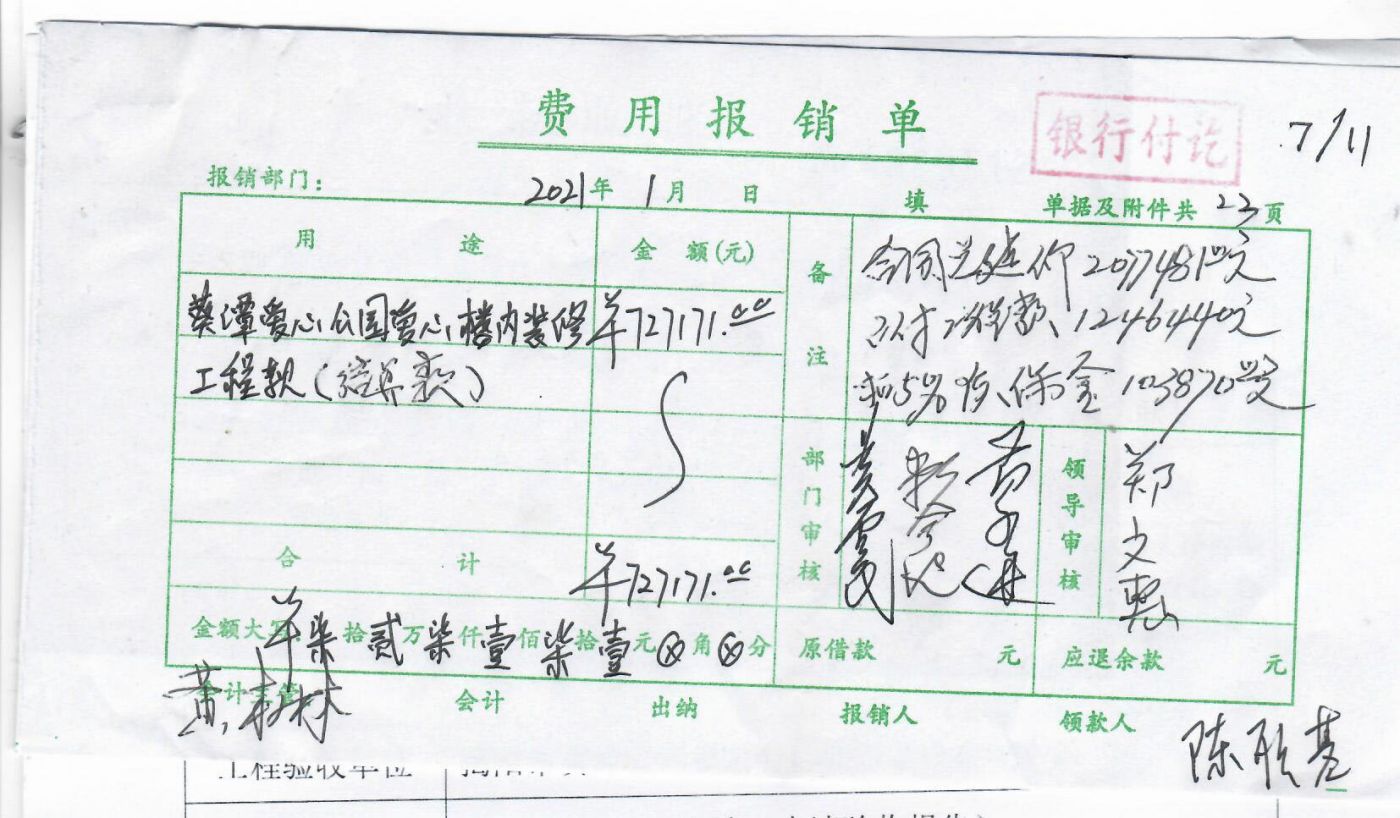 费用报销单
银行付讫
7/11
报销部门: 2021年 1月 日 填 单据及附件共 23 页
用途 金额(元) 备注
葵潭爱心公园爱心楼内装修 ¥727171.00
工程款(结算款)
合同总造价2077481元
已付工程款1246440元
扣5%质保金103870元
部门审核 领导审核 郑文惠
合计 ¥727171.00
金额大写 ¥柒拾贰万柒仟壹佰柒拾壹元⊗角⊗分 原借款 元 应退余款 元
会计主管 黄林林 会计 出纳 报销人 领款人
陈欣基
工程验收单位